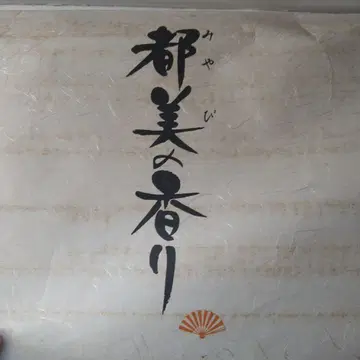 都美の香り
みやび